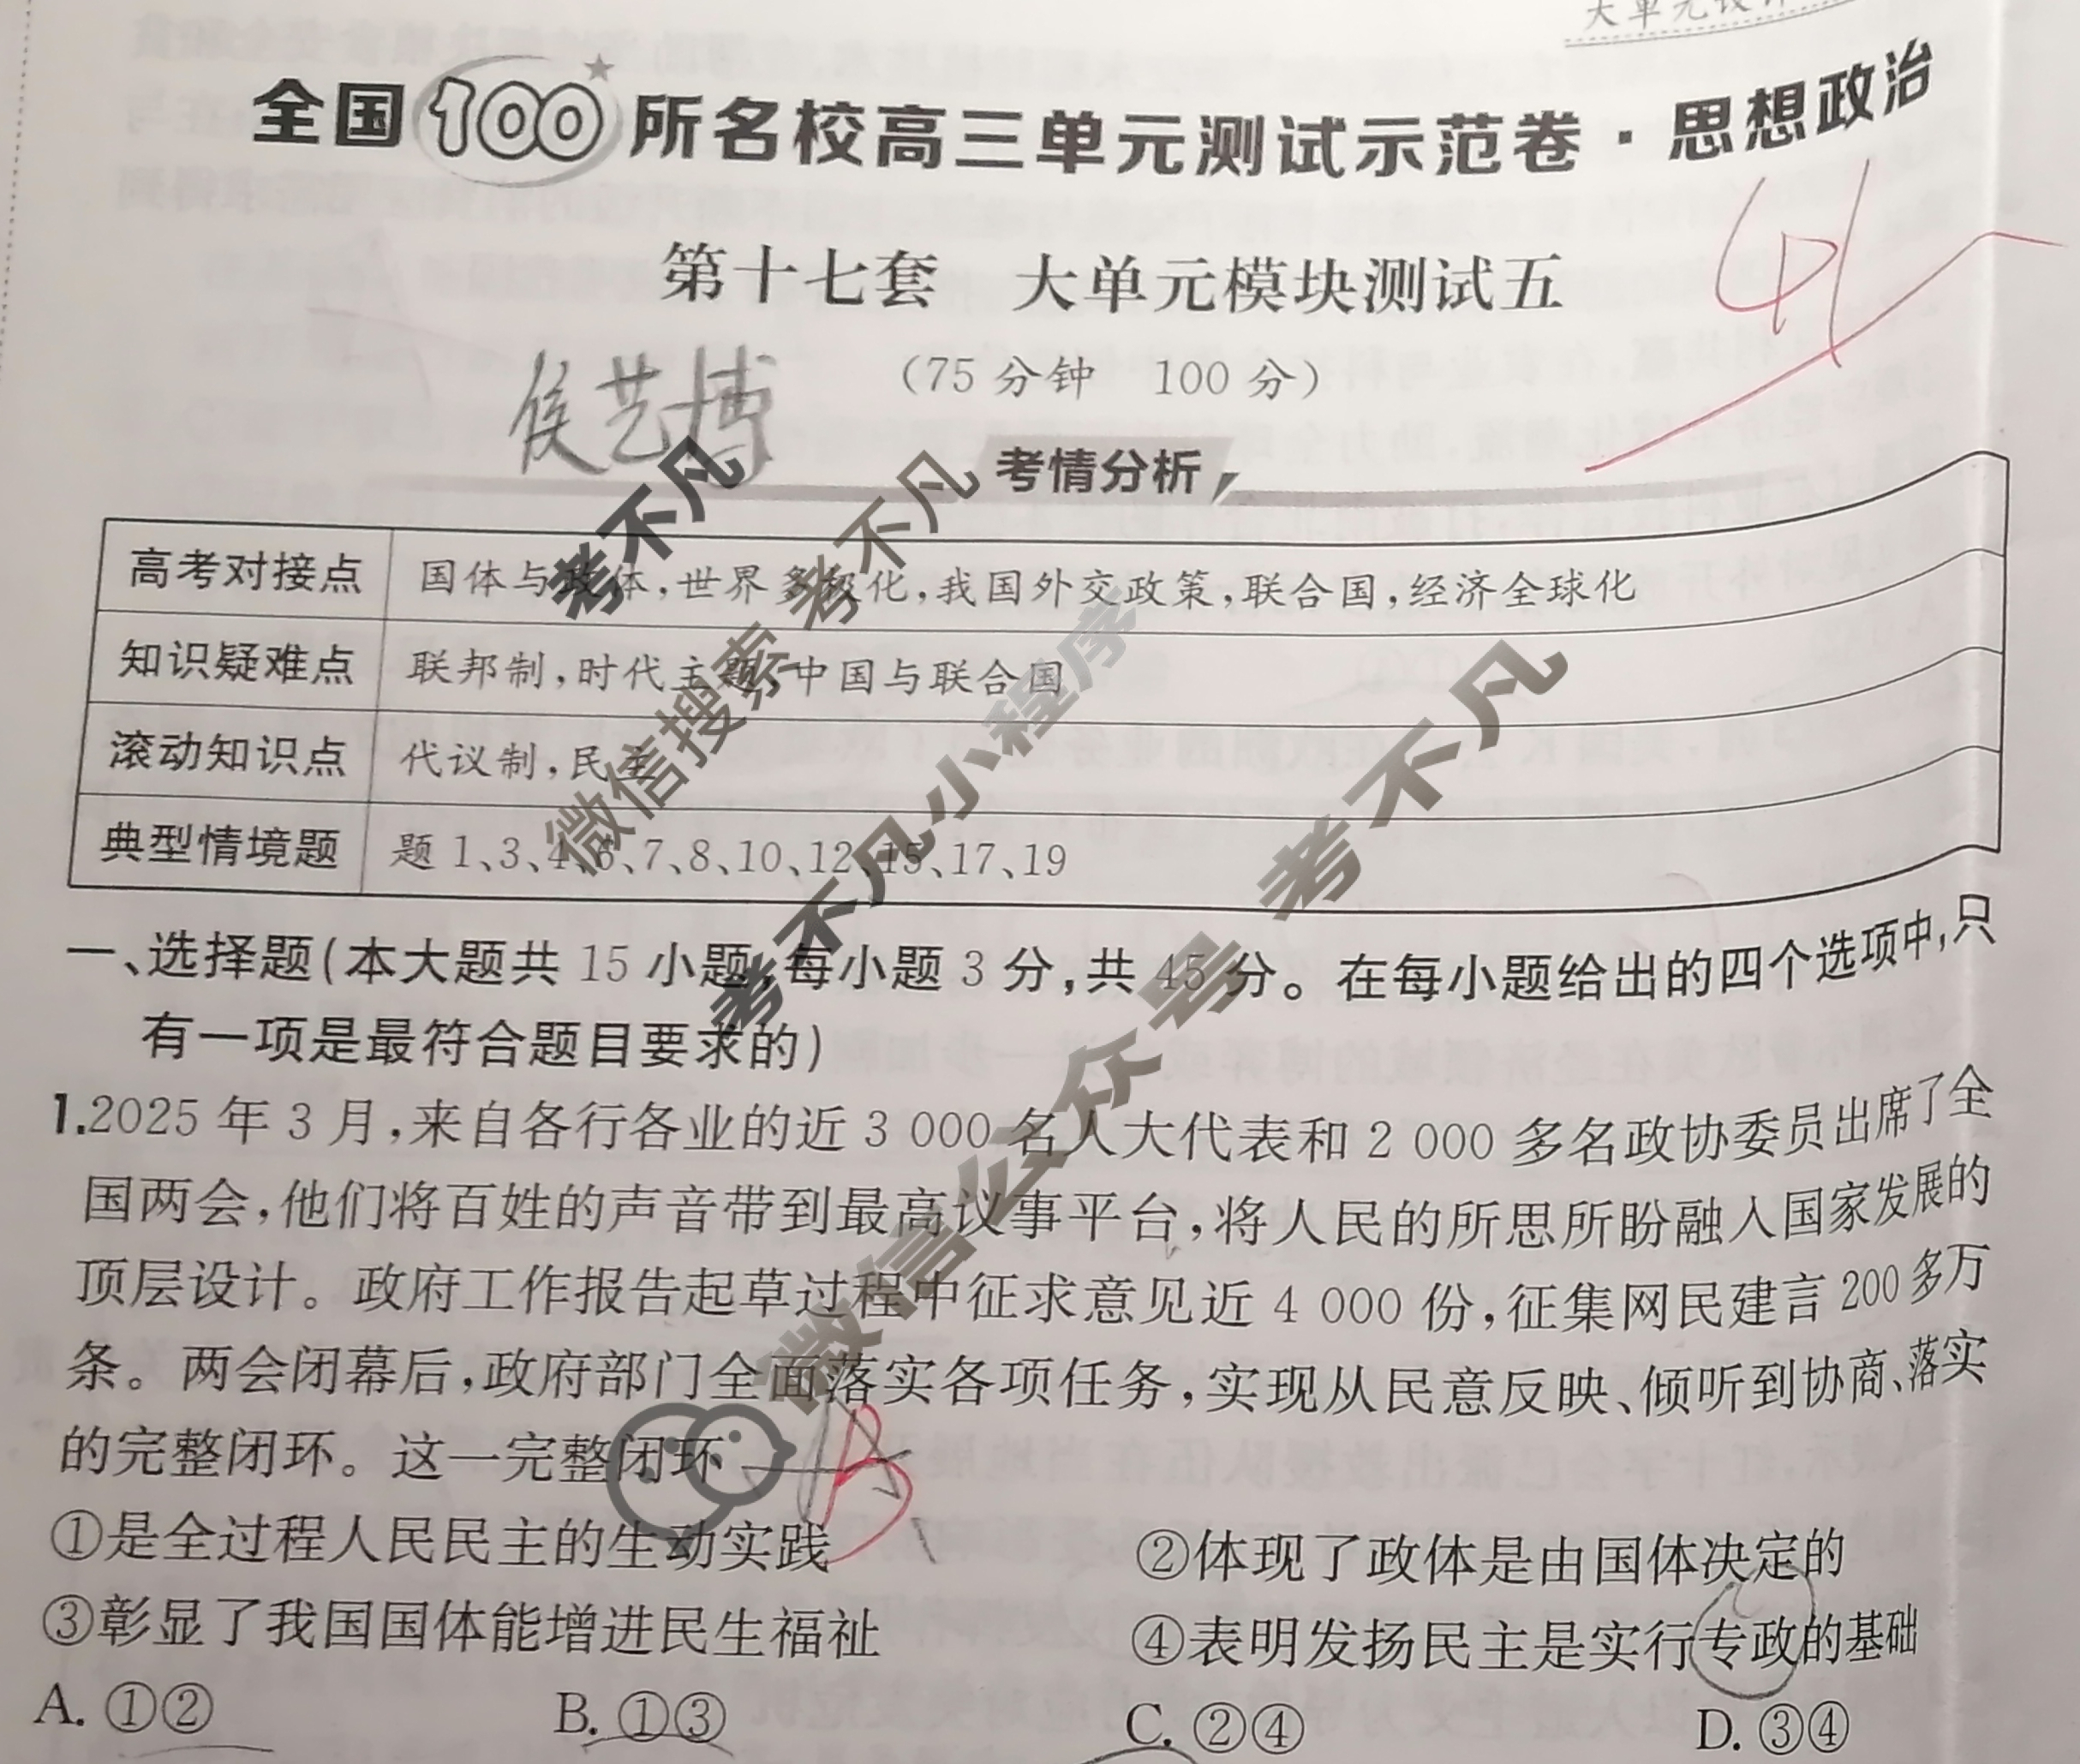 全国100所名校高三单元测试示范卷·思想政治
第十七套 大单元模块测试五
(75分钟 100分)
侯艺博
考情分析
高考对接点 国体与政体,世界多极化,我国外交政策,联合国,经济全球化
知识疑难点 联邦制,时代主题,中国与联合国
滚动知识点 代议制,民主
典型情境题 题1、3、4、6、7、8、10、12、15、17、19
一、选择题(本大题共15小题,每小题3分,共45分。在每小题给出的四个选项中,只
有一项是最符合题目要求的)
1.2025年3月,来自各行各业的近3 000名人大代表和2 000多名政协委员出席了全
国两会,他们将百姓的声音带到最高议事平台,将人民的所思所盼融入国家发展的
顶层设计。政府工作报告起草过程中征求意见近4 000份,征集网民建言200多万
条。两会闭幕后,政府部门全面落实各项任务,实现从民意反映、倾听到协商、落实
的完整闭环。这一完整闭环 B
①是全过程人民民主的生动实践 ②体现了政体是由国体决定的
③彰显了我国国体能增进民生福祉 ④表明发扬民主是实行专政的基础
A. ①② B. ①③ C. ②④ D. ③④
考不凡
微信搜索 考不凡
考不凡小程序
微信公众号 考不凡